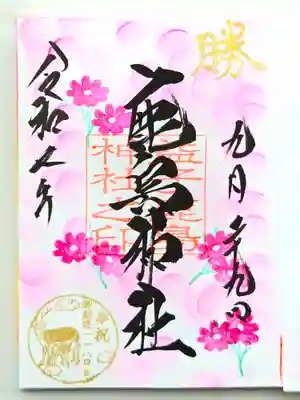 勝
九月
九日
鹿島神社
益子鹿島
神社之印
令和
年
奉祝